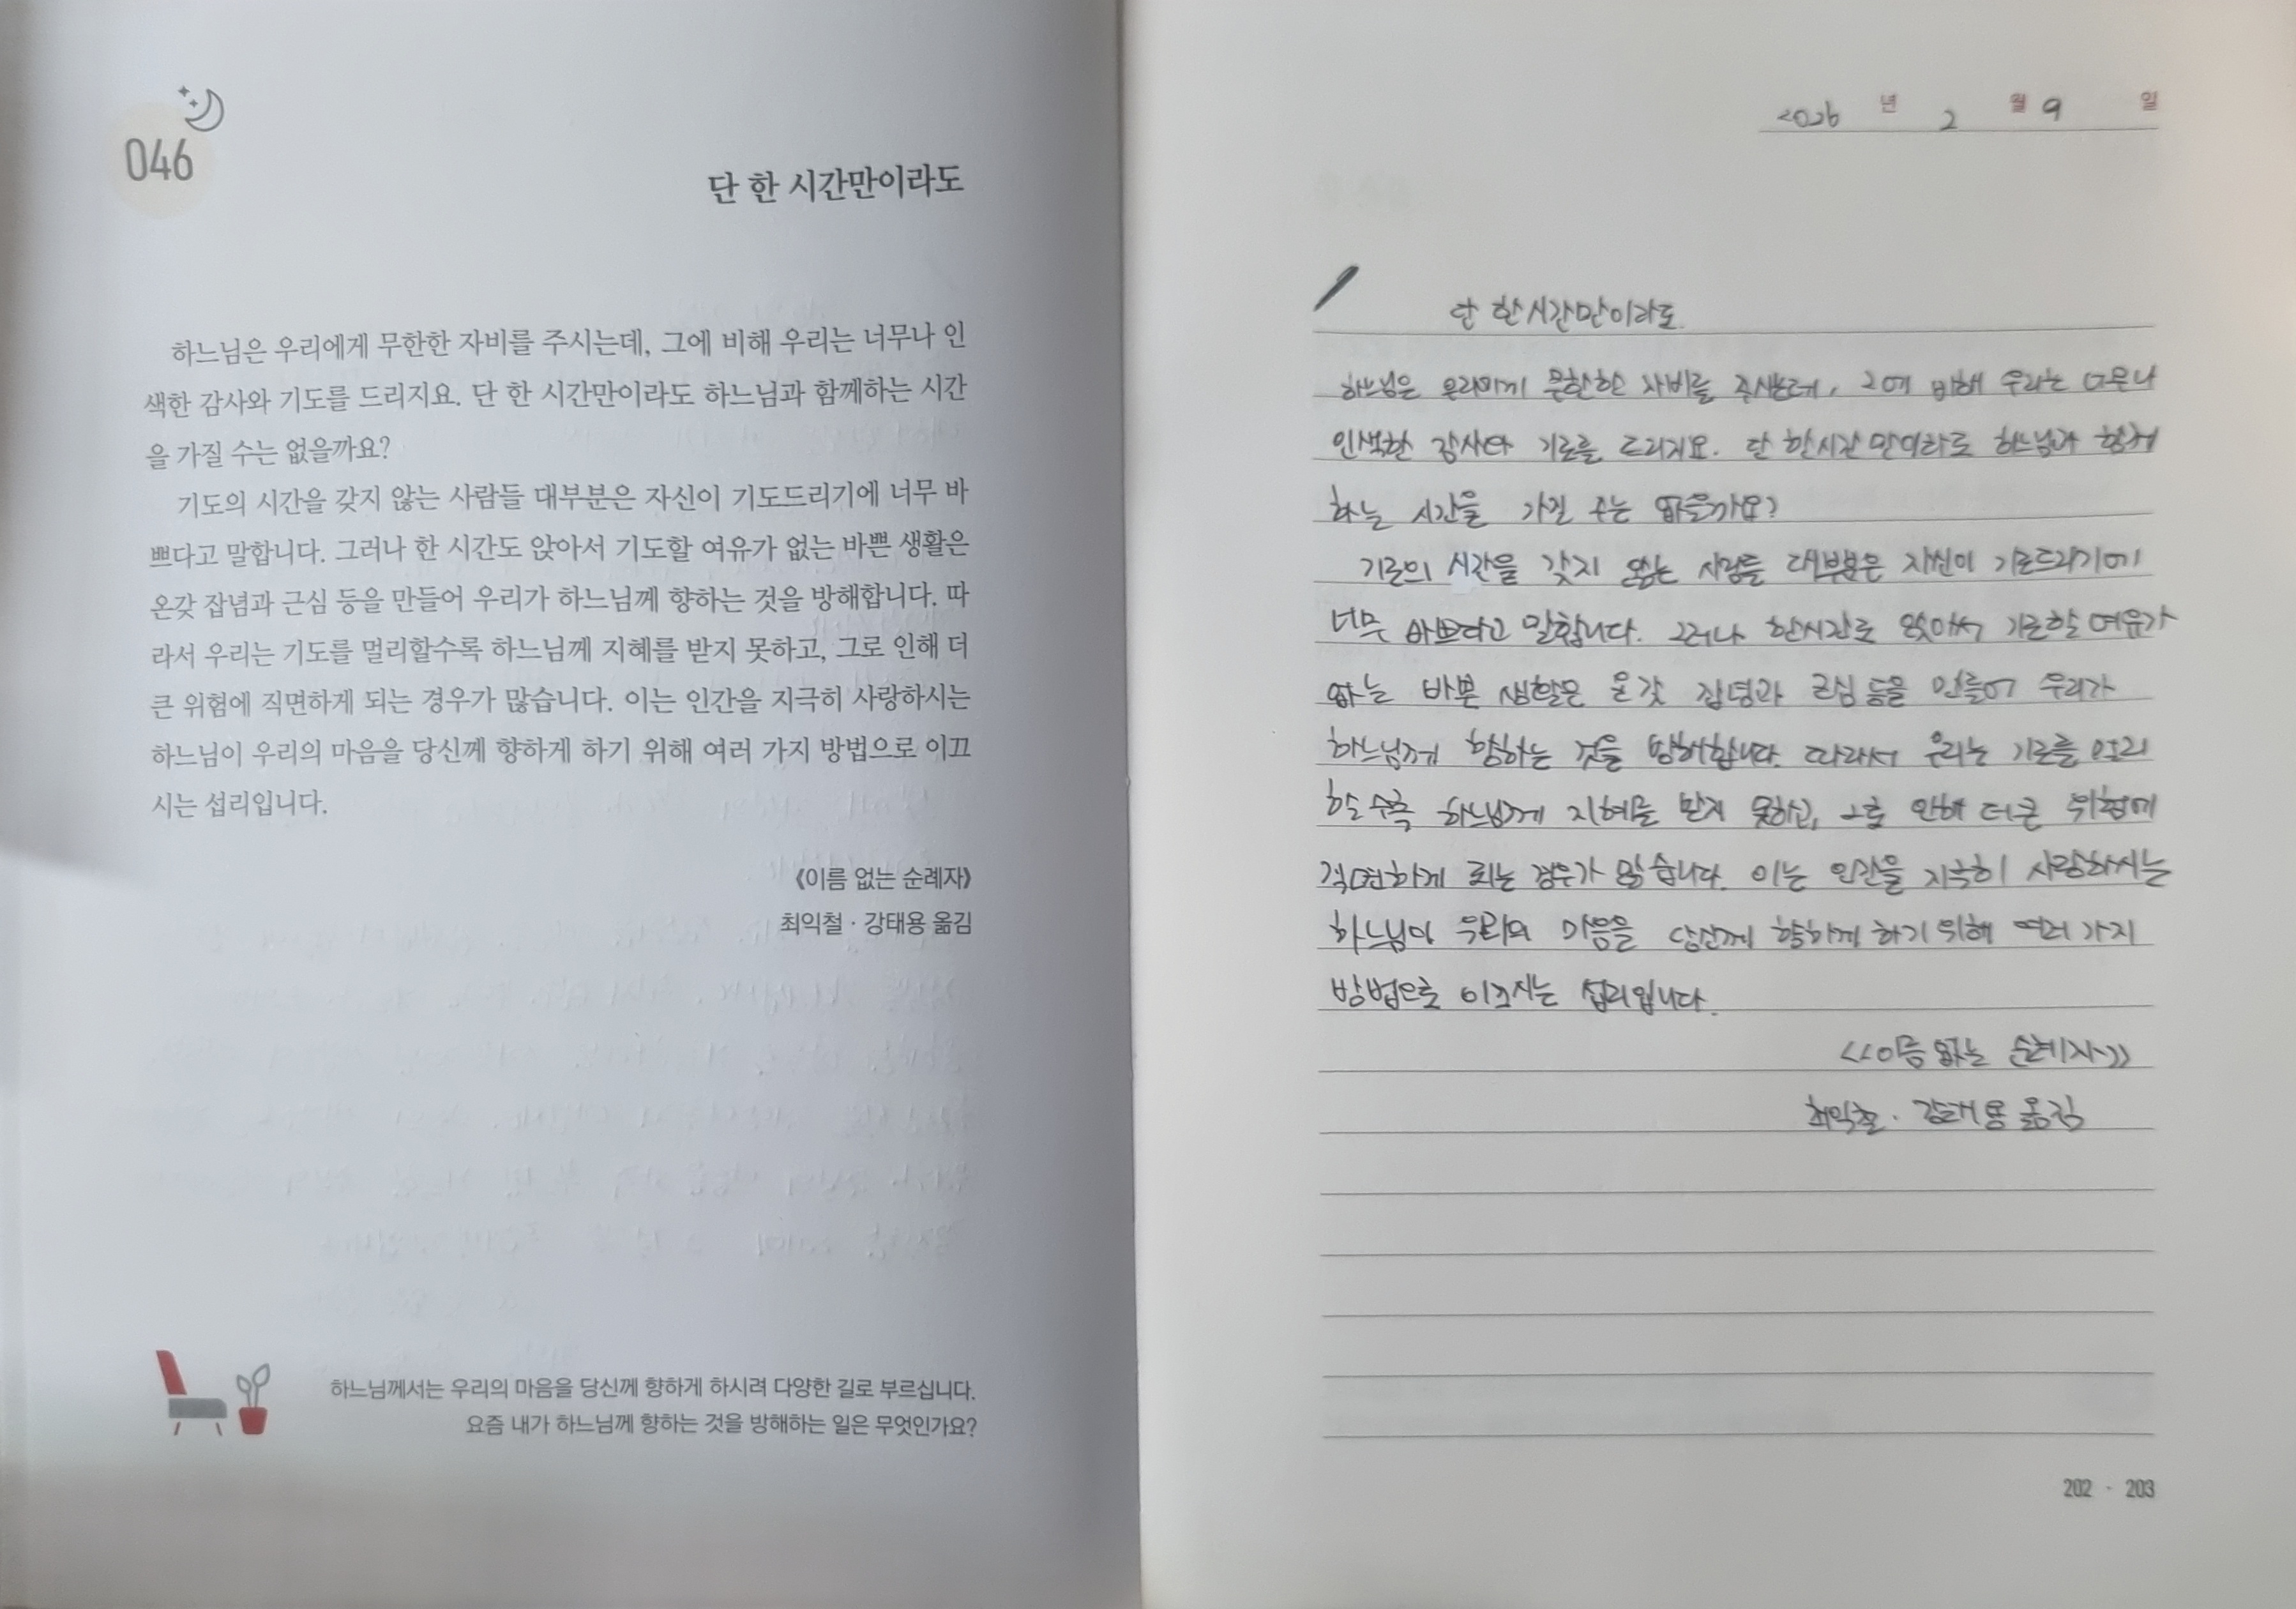 046
단 한 시간만이라도
하느님은 우리에게 무한한 자비를 주시는데, 그에 비해 우리는 너무나 인
색한 감사와 기도를 드리지요. 단 한 시간만이라도 하느님과 함께하는 시간
을 가질 수는 없을까요?
기도의 시간을 갖지 않는 사람들 대부분은 자신이 기도드리기에 너무 바
쁘다고 말합니다. 그러나 한 시간도 앉아서 기도할 여유가 없는 바쁜 생활은
온갖 잡념과 근심 등을 만들어 우리가 하느님께 향하는 것을 방해합니다. 따
라서 우리는 기도를 멀리할수록 하느님께 지혜를 받지 못하고, 그로 인해 더
큰 위험에 직면하게 되는 경우가 많습니다. 이는 인간을 지극히 사랑하시는
하느님이 우리의 마음을 당신께 향하게 하기 위해 여러 가지 방법으로 이끄
시는 섭리입니다.
《이름 없는 순례자》
최익철 · 강태용 옮김
하느님께서는 우리의 마음을 당신께 향하게 하시려 다양한 길로 부르십니다.
요즘 내가 하느님께 향하는 것을 방해하는 일은 무엇인가요?
2026 년 2 월 9 일
단 한 시간만이라도
하느님은 우리에게 무한한 자비를 주시는데, 그에 비해 우리는 너무나
인색한 감사와 기도를 드리지요. 단 한시간만이라도 하느님과 함께
하는 시간을 가질 수는 없을까요?
기도의 시간을 갖지 않는 사람들 대부분은 자신이 기도드리기에
너무 바쁘다고 말합니다. 그러나 한시간도 앉아서 기도할 여유가
없는 바쁜 생활은 온갖 잡념과 근심 등을 만들어 우리가
하느님께 향하는 것을 방해합니다. 따라서 우리는 기도를 멀리
할수록 하느님께 지혜를 받지 못하고, 그로 인해 더 큰 위험에
직면하게 되는 경우가 많습니다. 이는 인간을 지극히 사랑하시는
하느님이 우리의 마음을 당신께 향하게 하기 위해 여러 가지
방법으로 이끄시는 섭리입니다.
<<이름 없는 순례자>>
최익철 · 강태용 옮김
202 · 203